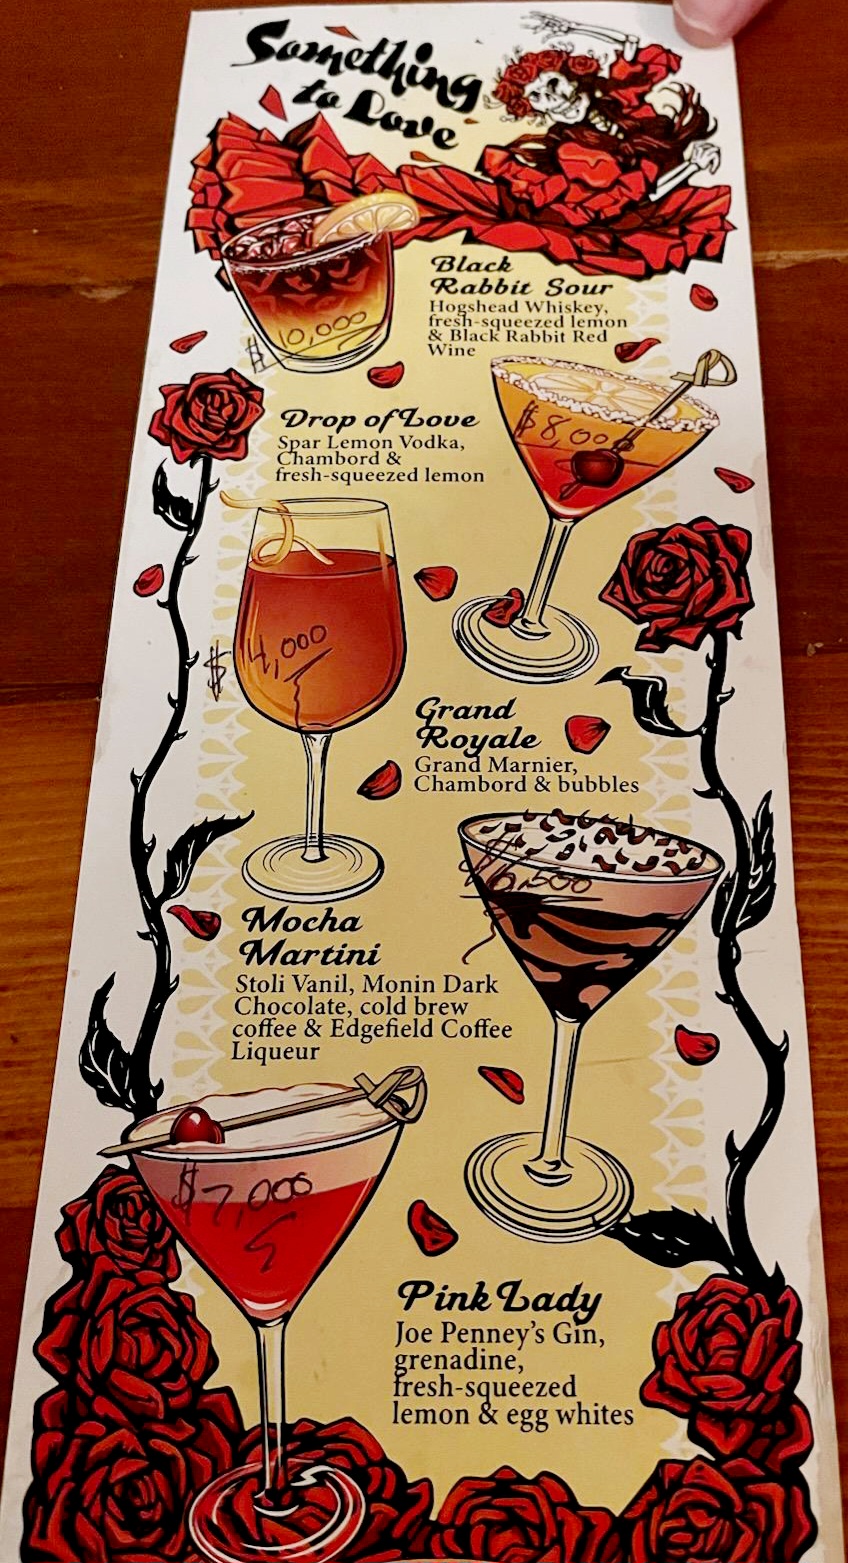 Something
to Love
Black
Rabbit Sour
Hogshead Whiskey,
fresh-squeezed lemon
& Black Rabbit Red
Wine
$10,000
Drop of Love
Spar Lemon Vodka,
Chambord &
fresh-squeezed lemon
$8,000
$14,000
Grand
Royale
Grand Marnier,
Chambord & bubbles
Mocha
Martini
Stoli Vanil, Monin Dark
Chocolate, cold brew
coffee & Edgefield Coffee
Liqueur
$7,000
Pink Lady
Joe Penney's Gin,
grenadine,
fresh-squeezed
lemon & egg whites